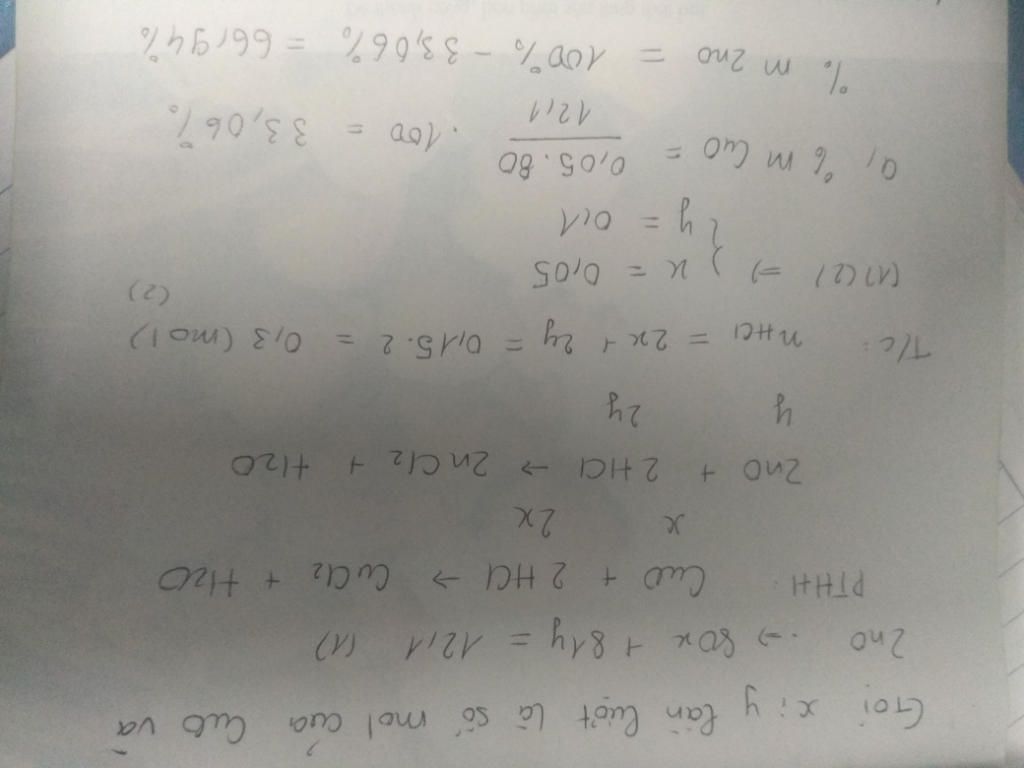 Gọi x; y lần lượt là số mol của CuO và
ZnO -> 80x + 81y = 12,1 (1)
PTHH: CuO + 2HCl → CuCl2 + H2O
x 2x
ZnO + 2HCl → ZnCl2 + H2O
y 2y
T/c: nHCl = 2x + 2y = 0,15.2 = 0,3 (mol)
(2)
(1)(2) => { x = 0,05
{ y = 0,1
a, % m CuO = 0,05.80 / 12,1 .100 = 33,06%
% m ZnO = 100% - 33,06% = 66,94%